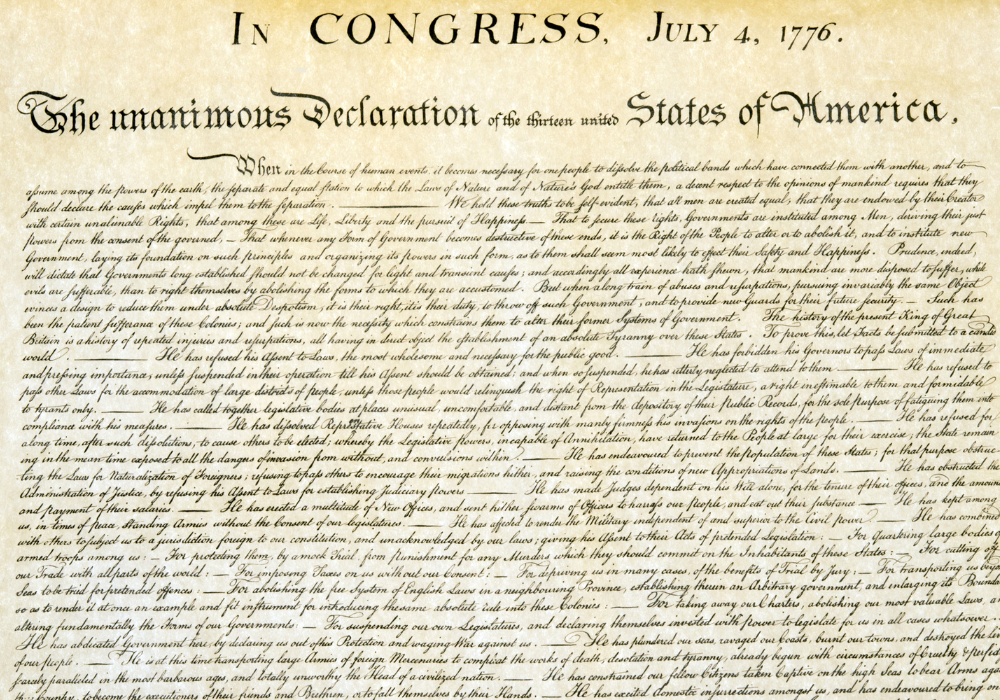 IN CONGRESS, JULY 4, 1776.
The unanimous Declaration of the thirteen united States of America,
When in the Course of human events, it becomes necessary for one people to dissolve the political bands which have connected them with another, and to
assume among the powers of the earth, the separate and equal station to which the Laws of Nature and of Nature's God entitle them, a decent respect to the opinions of mankind requires that they
should declare the causes which impel them to the separation. — We hold these truths to be self-evident, that all men are created equal, that they are endowed by their Creator
with certain unalienable Rights, that among these are Life, Liberty and the pursuit of Happiness — That to secure these rights, Governments are instituted among Men, deriving their just
powers from the consent of the governed, — That whenever any Form of Government becomes destructive of these ends, it is the Right of the People to alter or to abolish it, and to institute new
Government, laying its foundation on such principles and organizing its powers in such form, as to them shall seem most likely to effect their Safety and Happiness. Prudence, indeed,
will dictate that Governments long established should not be changed for light and transient causes; and accordingly all experience hath shewn, that mankind are more disposed to suffer, while
evils are sufferable, than to right themselves by abolishing the forms to which they are accustomed. But when a long train of abuses and usurpations, pursuing invariably the same Object
evinces a design to reduce them under absolute Despotism, it is their right, it is their duty, to throw off such Government, and to provide new Guards for their future security. — Such has
been the patient sufferance of these Colonies; and such is now the necessity which constrains them to alter their former Systems of Government. The history of the present King of Great
Britain is a history of repeated injuries and usurpations, all having in direct object the establishment of an absolute Tyranny over these States. To prove this, let Facts be submitted to a candid
world. — He has refused his Assent to Laws, the most wholesome and necessary for the public good. — He has forbidden his Governors to pass Laws of immediate
and pressing importance, unless suspended in their operation till his Assent should be obtained; and when so suspended, he has utterly neglected to attend to them — He has refused to
pass other Laws for the accommodation of large districts of people, unless those people would relinquish the right of Representation in the Legislature, a right inestimable to them and formidable
to tyrants only. — He has called together legislative bodies at places unusual, uncomfortable, and distant from the depository of their Public Records, for the sole purpose of fatiguing them into
compliance with his measures. — He has dissolved Representative Houses repeatedly, for opposing with manly firmness his invasions on the rights of the people. — He has refused for
a long time, after such dissolutions, to cause others to be elected; whereby the Legislative powers, incapable of Annihilation, have returned to the People at large for their exercise; the State remain
ing in the mean time exposed to all the dangers of invasion from without, and convulsions within. — He has endeavoured to prevent the population of these States; for that purpose obstruc
ting the Laws for Naturalization of Foreigners; refusing to pass others to encourage their migrations hither, and raising the conditions of new Appropriations of Lands. — He has obstructed the
Administration of Justice, by refusing his Assent to Laws for establishing Judiciary powers — He has made Judges dependent on his Will alone, for the tenure of their offices, and the amount
and payment of their salaries. — He has erected a multitude of New Offices, and sent hither swarms of Officers to harass our people, and eat out their substance. — He has kept among
us, in times of peace, Standing Armies without the Consent of our legislatures. — He has affected to render the Military independent of and superior to the Civil power. — He has combined
with others to subject us to a jurisdiction foreign to our constitution, and unacknowledged by our laws; giving his Assent to their Acts of pretended Legislation: — For Quartering large bodies of
armed troops among us: — For protecting them, by a mock Trial, from Punishment for any Murders which they should commit on the Inhabitants of these States: — For cutting off
our Trade with all parts of the world: — For imposing Taxes on us without our Consent: — For depriving us in many cases, of the benefits of Trial by Jury: — For transporting us beyond
Seas to be tried for pretended offences: — For abolishing the free System of English Laws in a neighbouring Province, establishing therein an Arbitrary government, and enlarging its Boundaries
so as to render it at once an example and fit instrument for introducing the same absolute rule into these Colonies: — For taking away our Charters, abolishing our most valuable Laws, and
altering fundamentally the Forms of our Governments: — For suspending our own Legislatures, and declaring themselves invested with power to legislate for us in all cases whatsoever.
He has abdicated Government here, by declaring us out of his Protection and waging War against us. — He has plundered our seas, ravaged our Coasts, burnt our towns, and destroyed the lives
of our people. — He is at this time transporting large Armies of foreign Mercenaries to compleat the works of death, desolation and tyranny, already begun with circumstances of Cruelty & perfidy
scarcely paralleled in the most barbarous ages, and totally unworthy the Head of a civilized nation. — He has constrained our fellow Citizens taken Captive on the high Seas to bear Arms against
their Country, to become the executioners of their friends and Brethren, or to fall themselves by their Hands. — He has excited domestic insurrections amongst us, and has endeavoured to bring